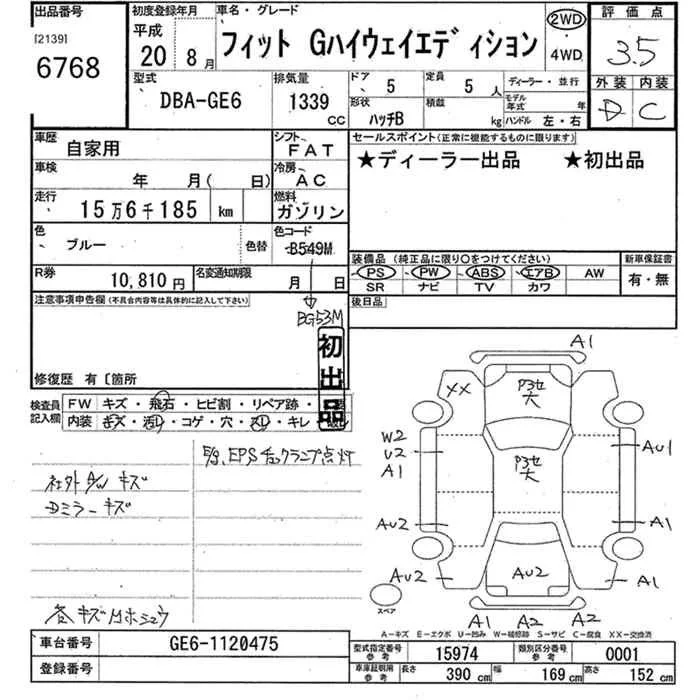 出品番号 初度登録年月 車名・グレード 評価点
[2139] 平成 2WD
6768 20 8月 フィット Gハイウェイエディション 4WD 3.5
型式 排気量 ドア 定員 ディーラー・並行 外装 内装
DBA-GE6 1339 CC 5 5人 モデル年式 年 D C
形状 積載
ハッチB kg ハンドル 左・右
車歴 シフト セールスポイント(正常に機能するものに限ります)
自家用 FAT ★ディーラー出品 ★初出品
車検 冷房
年 月( 日) AC
走行 燃料
15万6千185 km ガソリン
色 色コード
ブルー 色替 B549M
装備品 (純正品に限り○をつけてください) 新車保証書
PS PW ABS エアB AW 有・無
SR ナビ TV カワ
R券 10,810円 名変通知期限 月 日
後日品
注意事項申告欄(不具合内容等は具体的に記入して下さい) BG53M
初出品
修復歴 有〔箇所
検査員記入欄 FW キズ・飛石・ヒビ割・リペア跡・
内装 キズ・汚レ・コゲ・穴・スレ・キレ・
E/g,EPSチェックランプ点灯
社外A/W キズ
Dミラーキズ
各キズM ホシュウ
A1
XX
P3セ大
W2
U2
A1
AU1
P3セ大
AU2
A1
AU2
AU2
A1
スペア
A1 A2 A2
A―キズ E―エクボ U―凹み W―補修跡 S―サビ C―腐食 XX―交換済
車台番号 GE6-1120475
登録番号
型式指定番号 参考 15974 類別区分番号 参考 0001
車庫証明用 参考 長さ 390 cm 幅 169 cm 高さ 152 cm